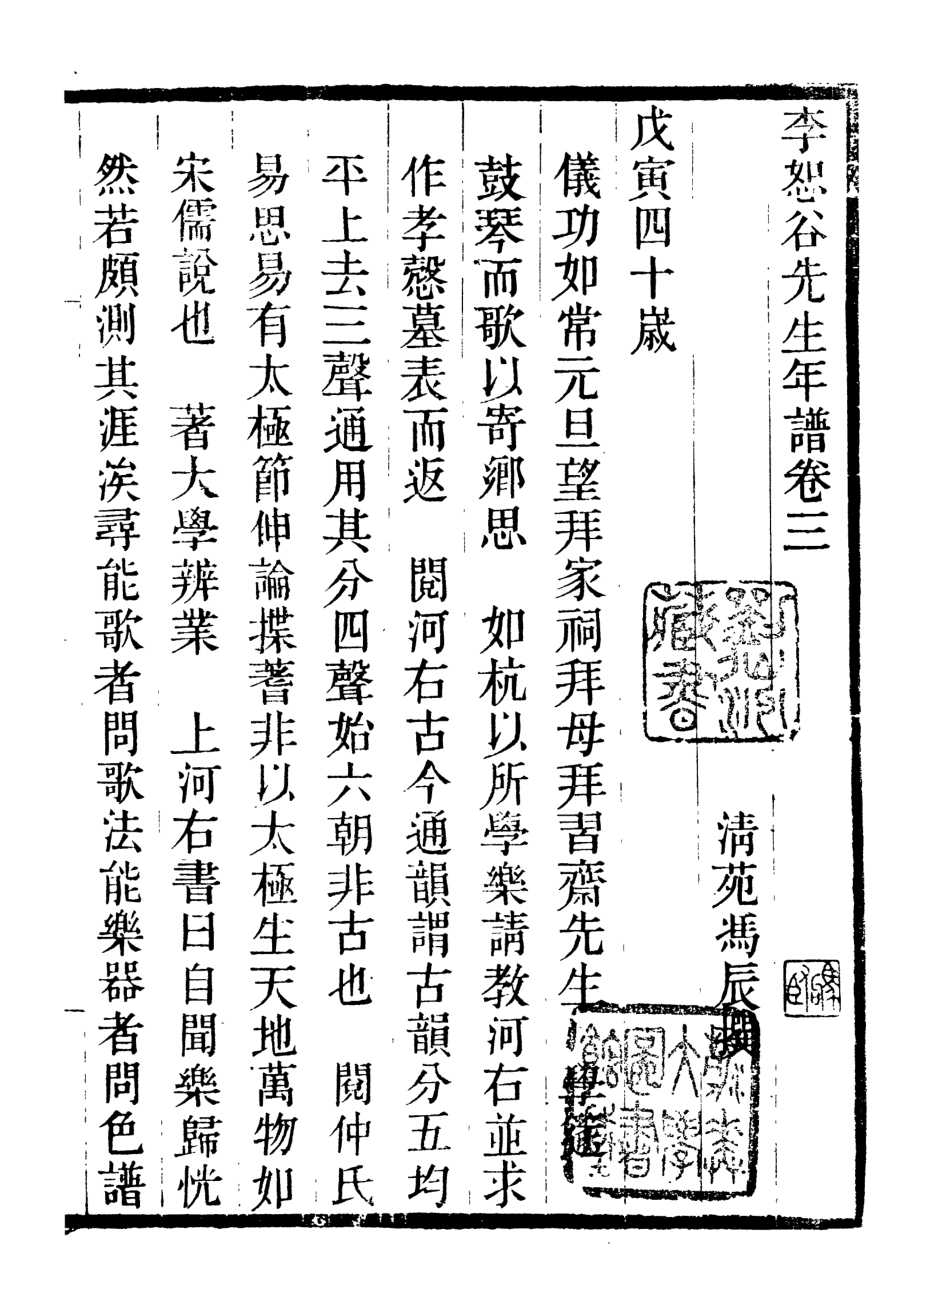 李恕谷先生年譜卷三
清苑馮辰撰
戊寅四十歲
儀功如常元旦望拜家祠拜母拜習齋先生學筵
鼓琴而歌以寄鄉思　如杭以所學樂請教河右並求
作孝慤墓表而返　閱河右古今通韻謂古韻分五均
平上去三聲通用其分四聲始六朝非古也　閱仲氏
易思易有太極節伸論揲蓍非以太極生天地萬物如
宋儒說也　著大學辨業　上河右書曰自聞樂歸恍
然若頗測其涯涘尋能歌者問歌法能樂器者問色譜